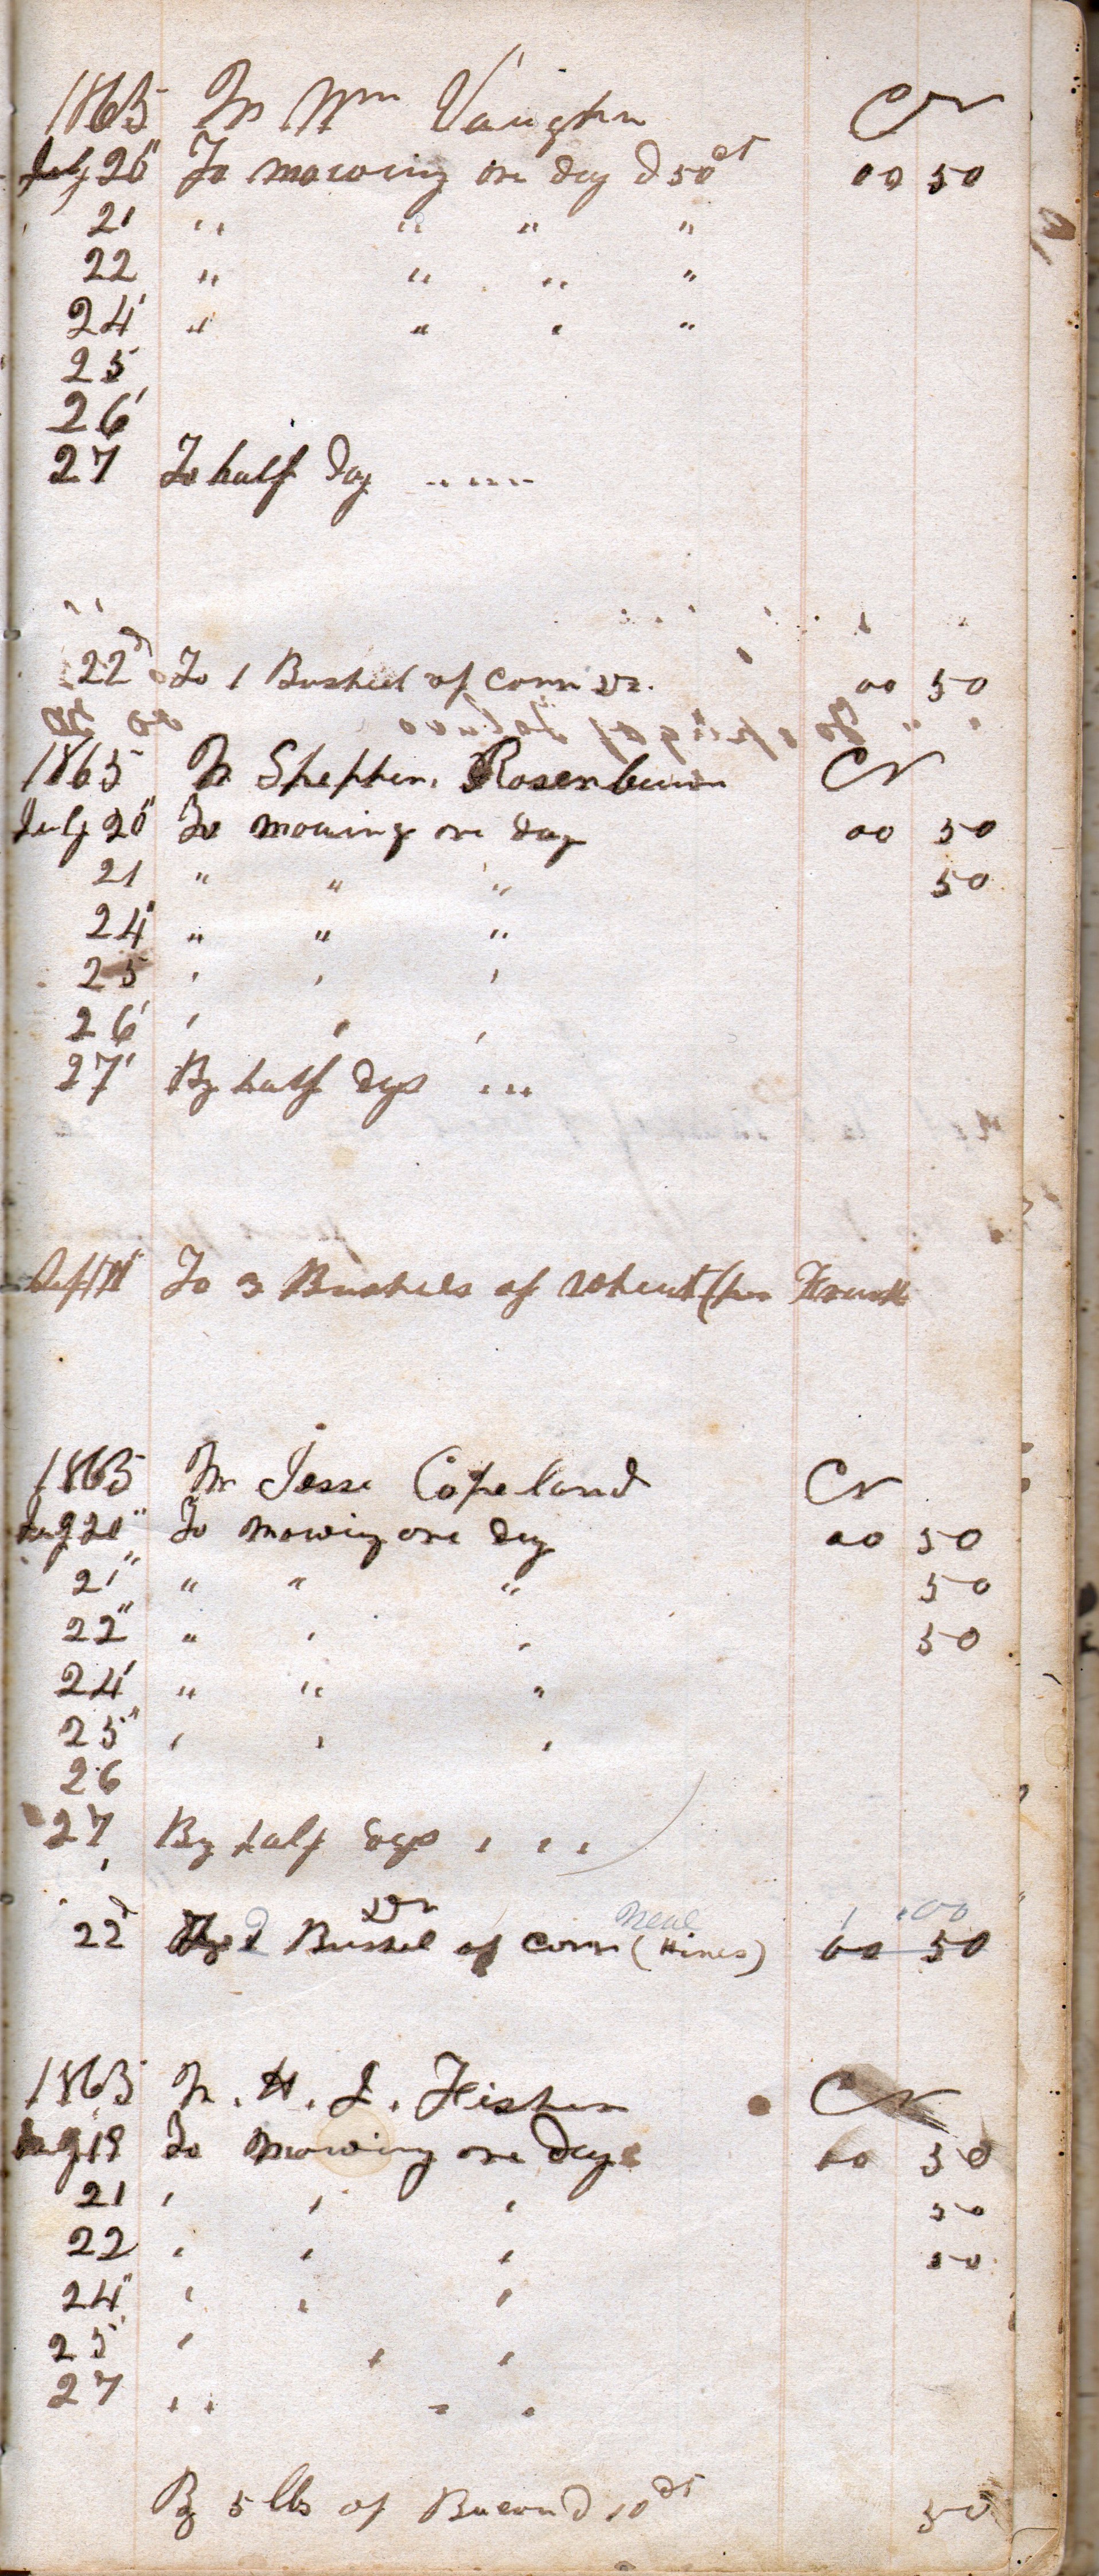 1865 Mr Wm Vaughn Cr
July 20" To mowing one day @ 50ct 00 50
21 " " " "
22 " " " "
24' " " " "
25
26'
27 To half Day .....
22d To 1 Bushel of Corn Dr. 00 50
1865 Mr Shephen. Rosenbumm Cr
July 20" To mowing one day 00 50
21 " " " 50
24" " " "
25 ' ' '
26' ' ' '
27' By half Days ...
Sept To 3 Bushels of Wheat (per
1865 Mr Jesse Copeland Cr
20" To mowing one day 00 50
21" " " " 50
22" " ' ' 50
24' " " "
25" ' ' '
26
27 By half Days ' ' '
22d 2 Bushel of Corn Dr (Neal Hines) 1.00 00 50
1865 Mr. H. J. Fisher Cr
19 To mowing one Day 00 50
21 ' ' ' 50
22 ' ' ' 50
24" ' ' '
25' ' ' '
27 " " '
By 5 lbs of Bacon @ 10cts 50